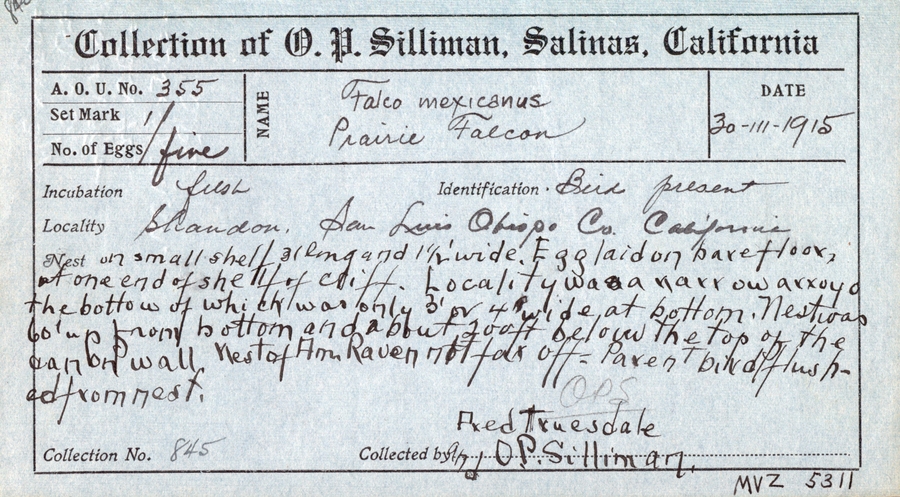 Collection of O. P. Silliman, Salinas, California
A. O. U. No. 355
Set Mark 1/
No. of Eggs/five
NAME
Falco mexicanus
Prairie Falcon
DATE
30-III-1915
Incubation fresh
Identification Bird present
Locality Shandon, San Luis Obispo Co. California
Nest on small shelf 3' long and 1½' wide. Egg laid on bare floor,
at one end of shelf of cliff. Locality was a narrow arroyo
the bottom of which was only 3' or 4' wide at bottom. Nest was
60' up from bottom and about 200ft below the top of the
canon wall Nest of Am Raven not far off - Parent bird flush-
ed from nest.
OPS
Fred Truesdale
Collection No. 845
Collected by O.P. Silliman.
MVZ 5311